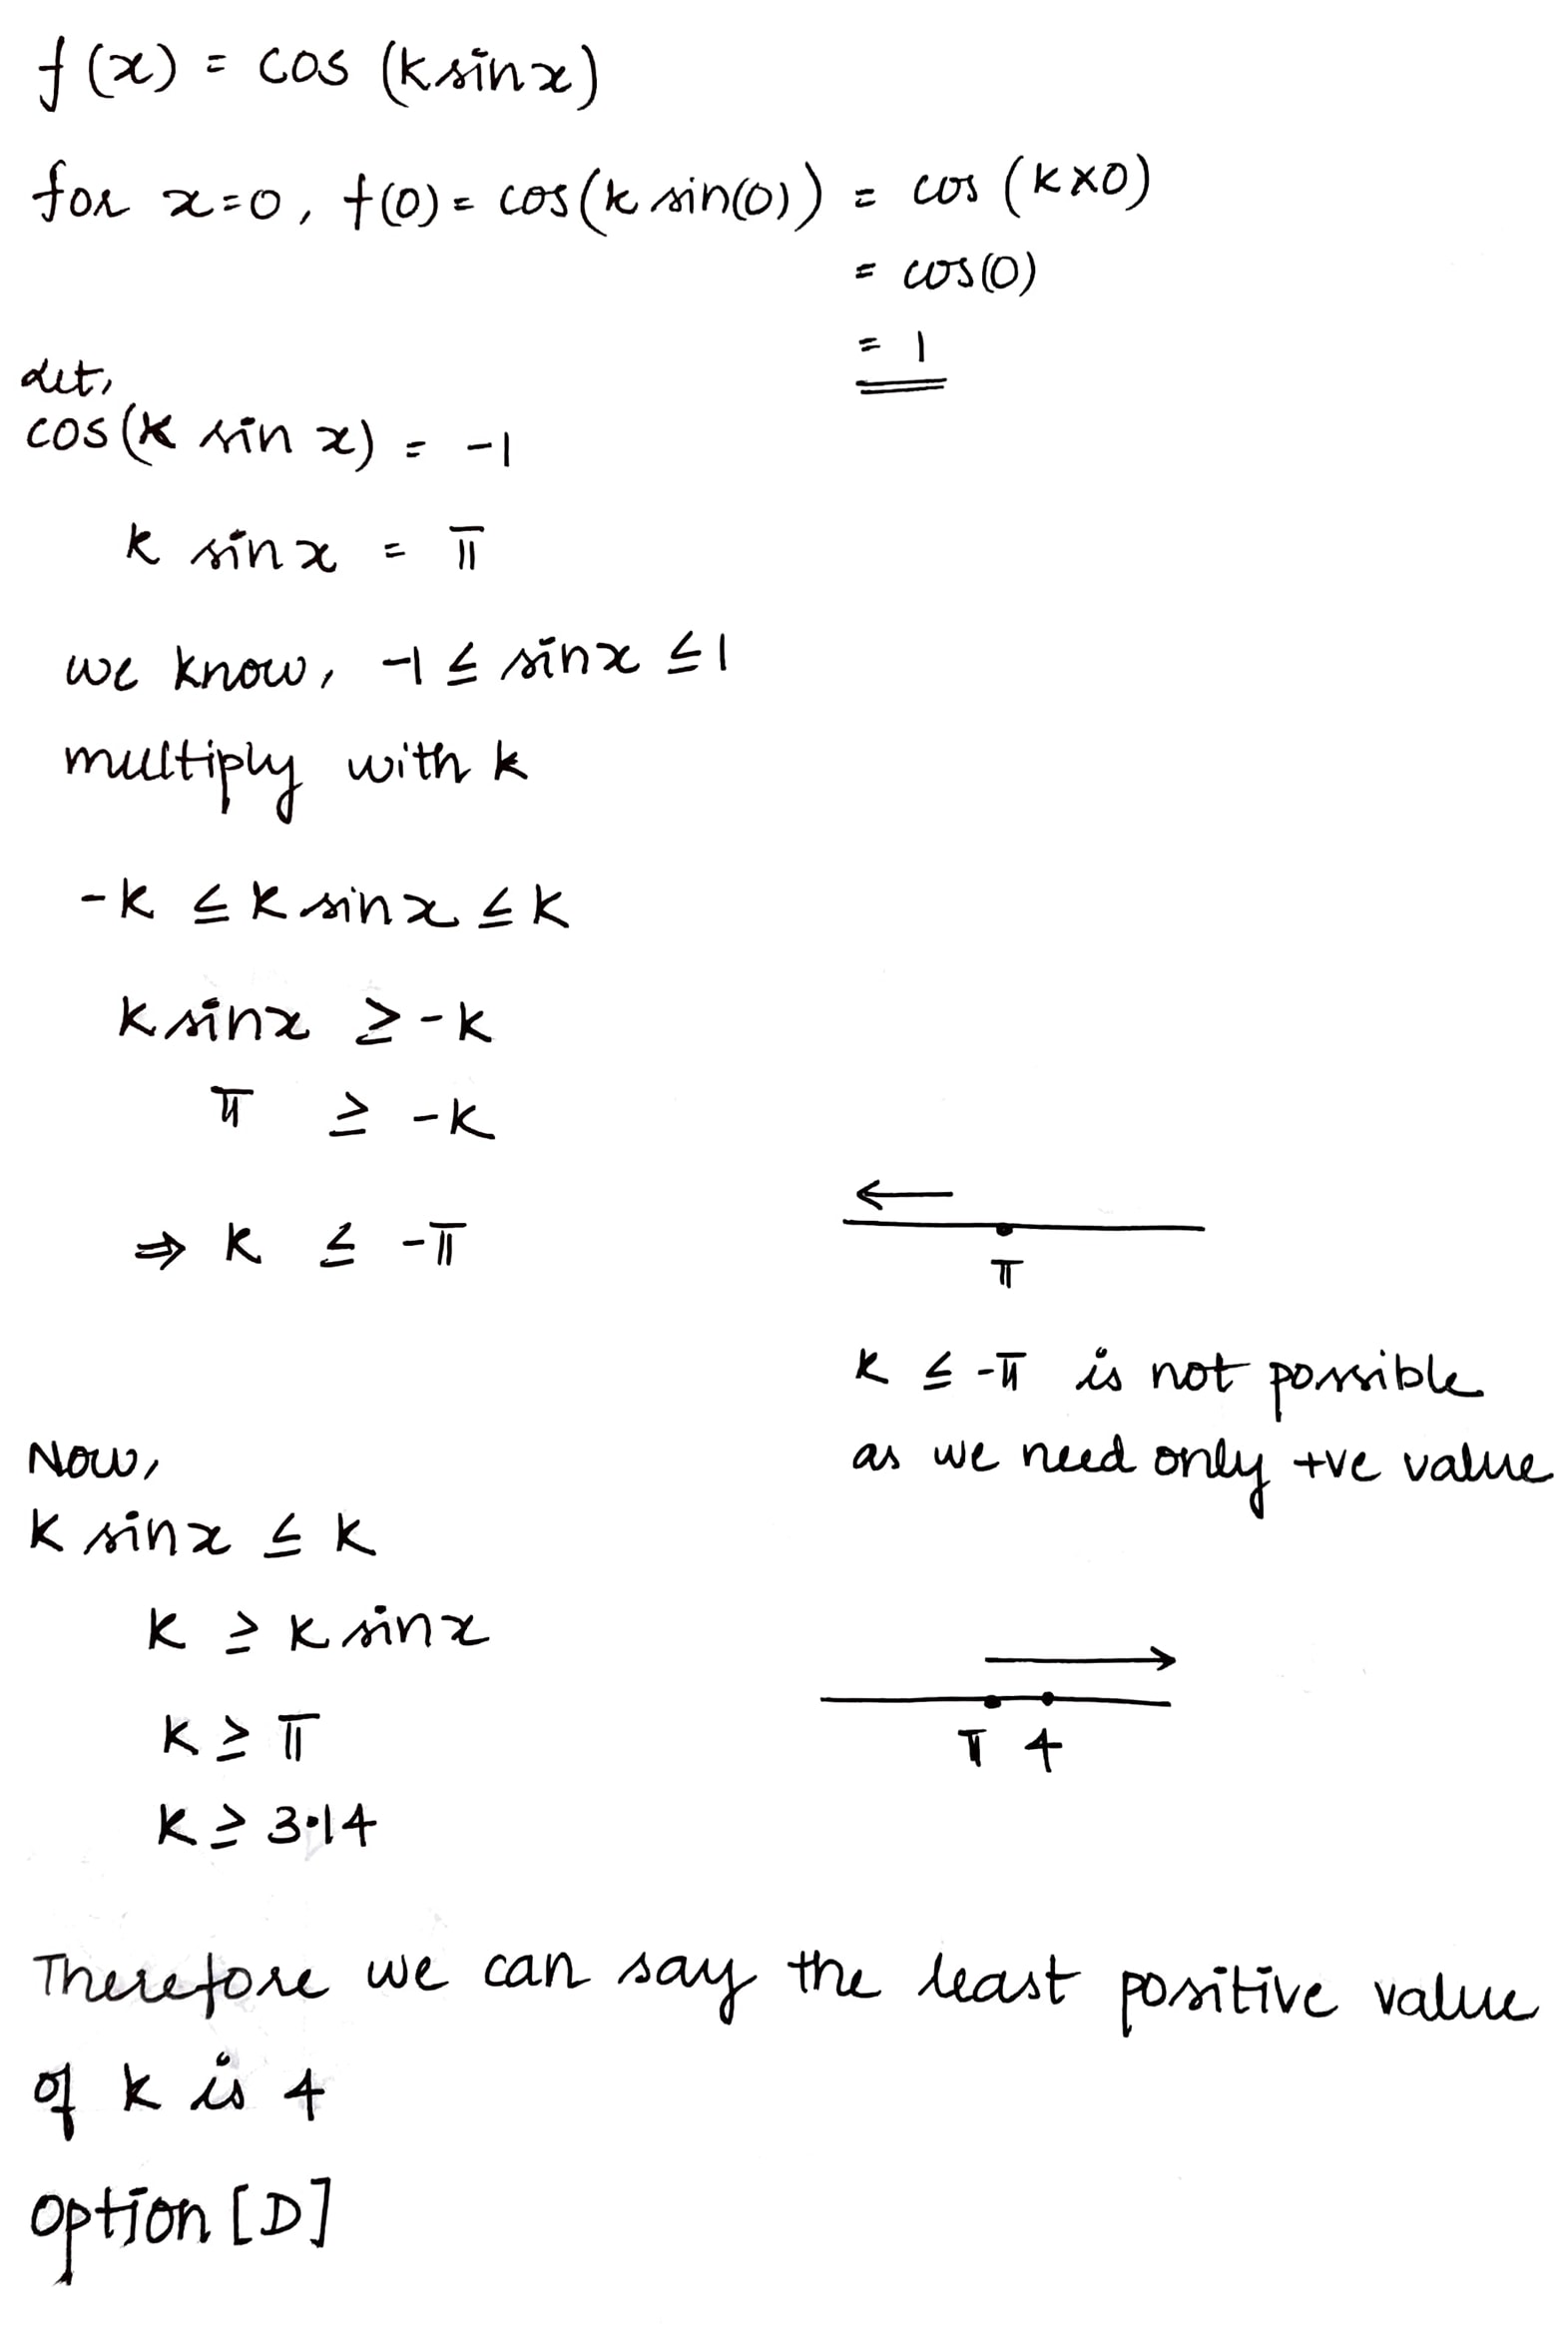 f(x) = cos (k sinx)
for x=0, f(0) = cos(k sin(0)) = cos (k×0)
= cos(0)
= 1
Let,
cos(k sin x) = -1
k sinx = π
we know, -1 ≤ sinx ≤ 1
multiply with k
-k ≤ k sinx ≤ k
k sinx ≥ -k
π ≥ -k
⇒ k ≤ -π
π
k ≤ -π is not possible
as we need only +ve value
Now,
k sinx ≤ k
k ≥ k sinx
k ≥ π
π 4
k ≥ 3.14
Therefore we can say the least positive value
of k is 4
option [D]